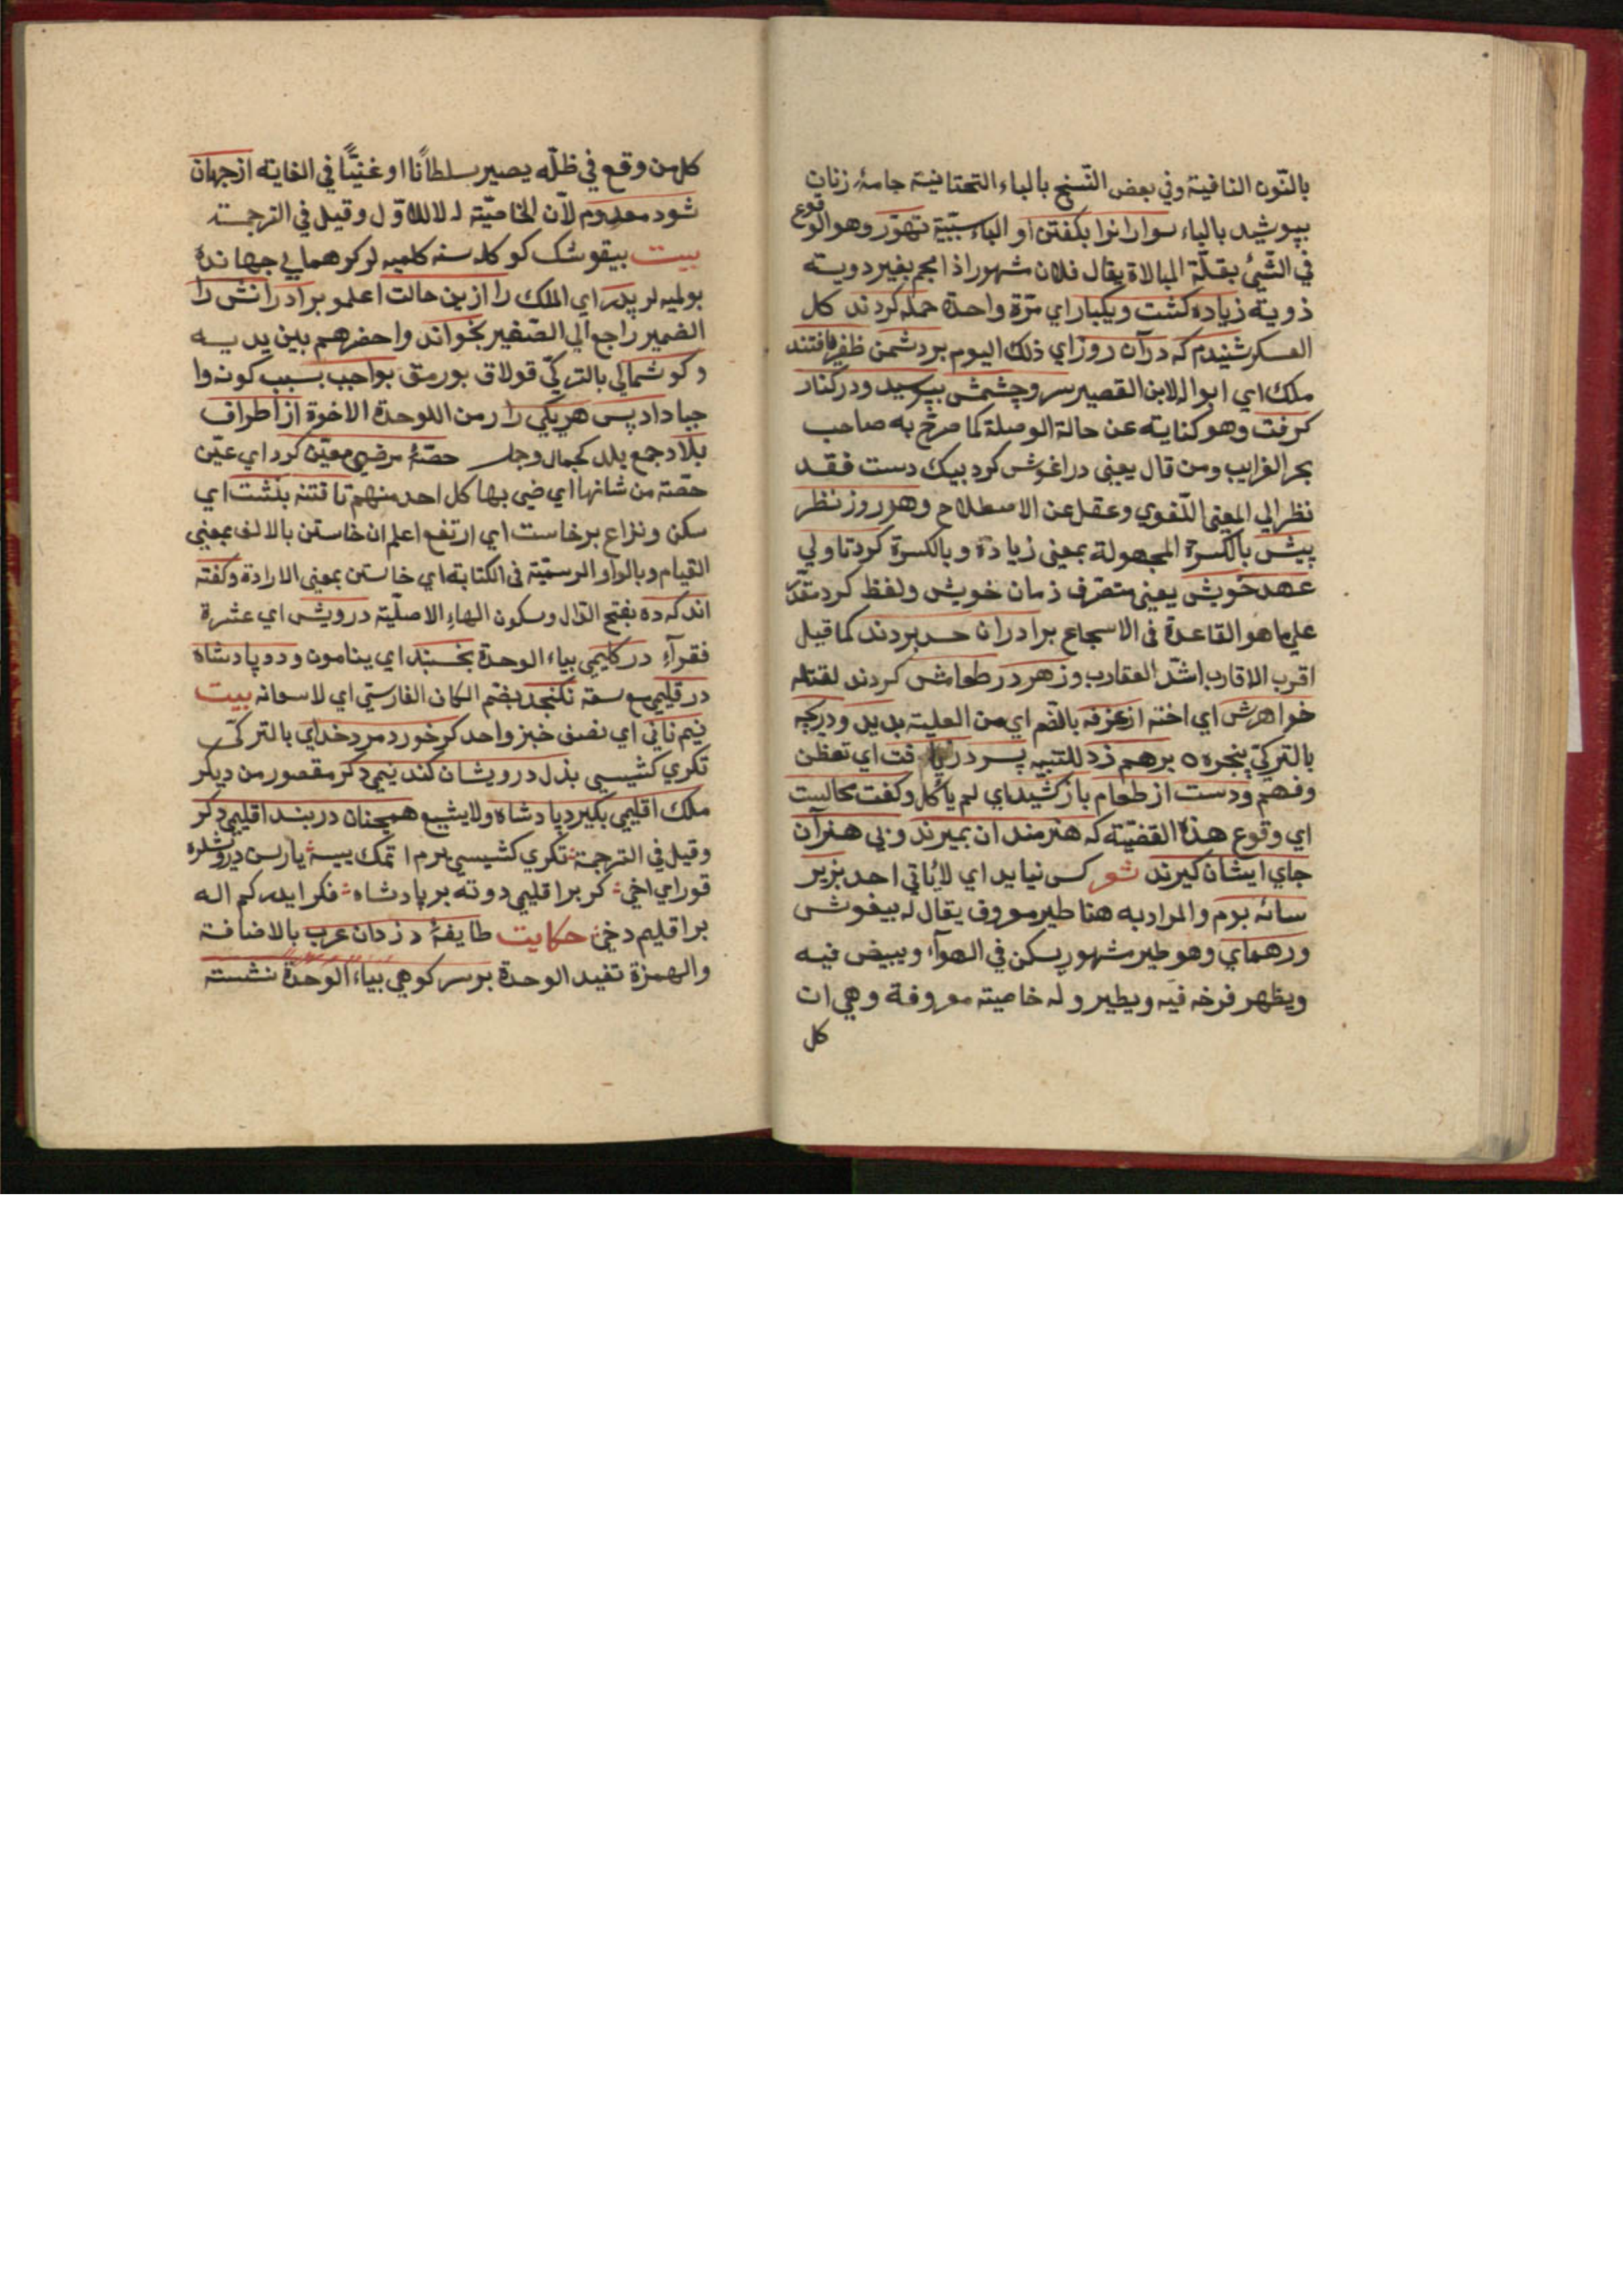 بالنّون النافية وفي بعض النّسخ بالباء التحتانية جامهٔ زنان
بپوشيد بالباء سوارانرا بكفتن او الباء سببيّة تهوّر وهو الوقوع
في الشّيئ بقلّة المبالاة يقال فلان شهورا اذا هجم بغير دويته
ذوية زياده كشت ويكبار اي مرّة واحدة حمله كردند كل
العسكر شنيدم كه در آن روز اي ذلك اليوم بر دشمن ظفر يافتند
ملك اي ابو الابن القصير سر وچشمش ببوسيد ودر كنار
كرفت وهو كناية عن حالة الوصلة كما صرّح به صاحب
بحر الغرايب ومن قال يعنى در اغوش كرد بيك دست فقد
نظر الي المعنى اللّغوي وغفل عن الاصطلاح وهر روز نظر
پيش بالكسرة المجهولة بمعنى زيادة وبالكسرة كرد تا ولي
عهد خويش يعنى متصرف زمان خويش ولفظ كرد مقدّر
علي ما هو القاعدة في الاسجاع برادران حسد بردند كما قيل
اقرب الاقارب اشدّ العقارب وزهر در طعامش كردند لقتله
خواهرش اي اخته از غرفه بالضّم اي من العلية بديد ودريچه
بالتركيّ پنجره ه برهم زد للتنبيه پسر دريافت اي تفطّن
وفهم ودست از طعام باز كشيد اي لم ياكل وكفت محالست
اي وقوع هذه القضيّة كه هنرمندان بميرند وبي هنرآن
جاي ايشان كيرند شعر كس نيايد اي لا يأتي احد بزير
سائه بوم والمراد به هنا طير معروف يقال له بيغوش
ور هماي وهو طير مشهور يسكن في الهوآء ويبيض فيه
ويظهر فرخه فيه ويطير وله خاصيته معروفة وهي ان
كل
كل من وقع في ظلّه يصير سلطانًا او غنيًّا في الغاية از جهان
شود معدوم لأن الخاصيّة له لا للاوّل وقيل في الترجمة
بيت بيقوشك كو كلمه سنه كلميه لر كر همايى جهاندة
بولميه لر پدر اي الملك را ازين حالت اعلمو برادرانش را
الضمير راجع الي الصّغير بخواند واحضرهم بين يديه
وكوشمالي بالتركيّ قولاق بورمق بواجب بسبب كونه وا
جبا داد پس هريكي را من للوحدة الاخوة از اطراف
بلاد جمع بلد كجمال وجمل حصّهٔ مرضي معيّن كرد اي عيّن
حصّة من شانها اي ضي بها كل احد منهم تا فتنه بنشت اي
سكن ونزاع برخاست اي ارتفع اعلم ان خاستن بالالف بمعني
القيام وبالواو الرسميّة في الكتابة اي خاستن بمعني الارادة وكفته
اند كه ده بفتح الدّال وسكون الهاء الاصليّة درويش اي عشرة
فقرآء در كليمي بياء الوحدة بخسبند اي ينامون ودو پادشاه
در قليمي مع سعته نكنجد بضم الكان الفارسيّ اي لا سعانه بيت
نيم ناني اي نصف خبز واحد كر خورد مرد خداي بالتركيّ
تكري كشيسي بذل درويشان كند نيمي دكر مقصور من ديكر
ملك اقليمي بكيرد پادشاه ولا يشبع همچنان در بند اقليمي دكر
وقيل في الترجمة تكري كشيسي يرم اتمك ييسه ياريسن درويشلره
قور اي اخي كر بر اقليمي دوته بر پادشاه فكر ايدر كم اله
بر اقليم دخى حكايت طايفهٔ دزدان عرب بالاضافة
والهمزة تفيد الوحدة بر سر كوهي بياء الوحدة نشسته